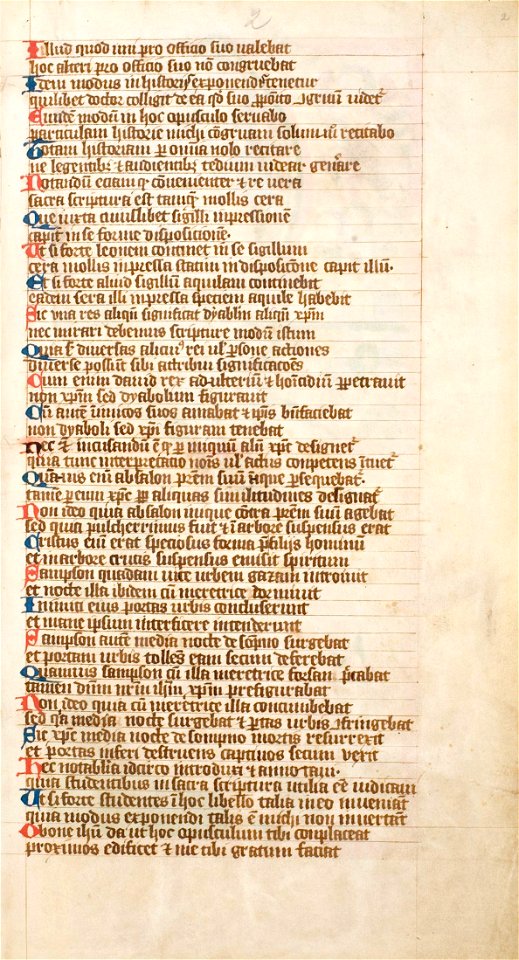 2
2
Illud quod uni pro officio suo valebat
hoc alteri pro officio suo nō congruebat
Item modus in historijs exponendis tenetur
quilibet doctor colligit de ea suo
Eundē modū in hoc opusculo seruabo
particulam historie michi cōgruam solum recitabo
Totam historiam p omnia nolo recitare
ne legentibꝫ & audientibꝫ tedium videar gen̄are
Notandū etiam qꝫ cōuenienter & re vera
sacra scriptura est tamqꝫ mollis cera
Que iuxta cuiuslibet sigilli inpressionē
capit in se forme disposicionē·
Ut si forte leonem continet in se sigillum
cera mollis inpressa statim in disposicōne capit illū·
Et si forte aliud sigillū aquilam continebit
eadem sera illi inpressa speciem aquile habebit
Sic vna res aliqn̄ significat dyablm̄ aliqn̄ xp̄m
nec mirari debemus scripture modū istum
Quia diuersas alicuiꝰ rei ul' psone actiones
diuerse possūt sibi attribui significacōes
Cum enim dauid rex adulteriū & homicidiū ppetrauit
non xp̄m sed dyabolum figurauit
Cū autē inimicos suos amabat & ip̄is bn̄faciebat
non dyaboli sed xp̄i figuram tenebat
Nec ē incusandū ē qꝫ p iniquū alin̄ xp̄c designet᷑
quia tunc interpretacio nois ul' actus conpetens īuet᷑
Quāuis enī absalon prēm suū iniqꝫ psequebat᷑·
tamē p eum xp̄c pp aliquas similitudines designat᷑
Non ideo quia absalon inique cōtra prēm suū agebat
sed quia pulcherrimus fuit & ī arbore suspensus erat
Cristus enī erat speciosus forma p filijs hominū
et in arbore crucis suspensus emisit spiritum
Sampson quadam vice vrbem gazam introiuit
et nocte illa ibidem cū meretrice dormiuit
Inimici eius portas vrbis concluserunt
et mane ipsum interficere intenderunt
Sampson autē media nocte de sōpno surgebat
et portam vrbis tollēs etiam secum deferebat
Quamuis sampson cū illa meretrice forsan pccabat
tamen dn̄m nr̄m ih̄m xp̄m prefigurabat
Non ideo quia cū meretrice illa concumbebat
sed qꝛ media nocte surgebat & ptas vrbis ꝯfringebat
Sic xp̄c media nocte de sompno mortis resurrexit
et portas inferi destruens captiuos secum vexit
Hec notabilia idcirco introduxi & annotaui·
quia studentibus in sacra scriptura vtilia eē iudicaui
Ut si forte studentes ī hoc libello talia meo inueniāt
quia modus exponendi talis ē michi non inuertāt
O bone ih̄u da vt hoc opusculum tibi conplaceat
proximos edificet & me tibi gratum faciat